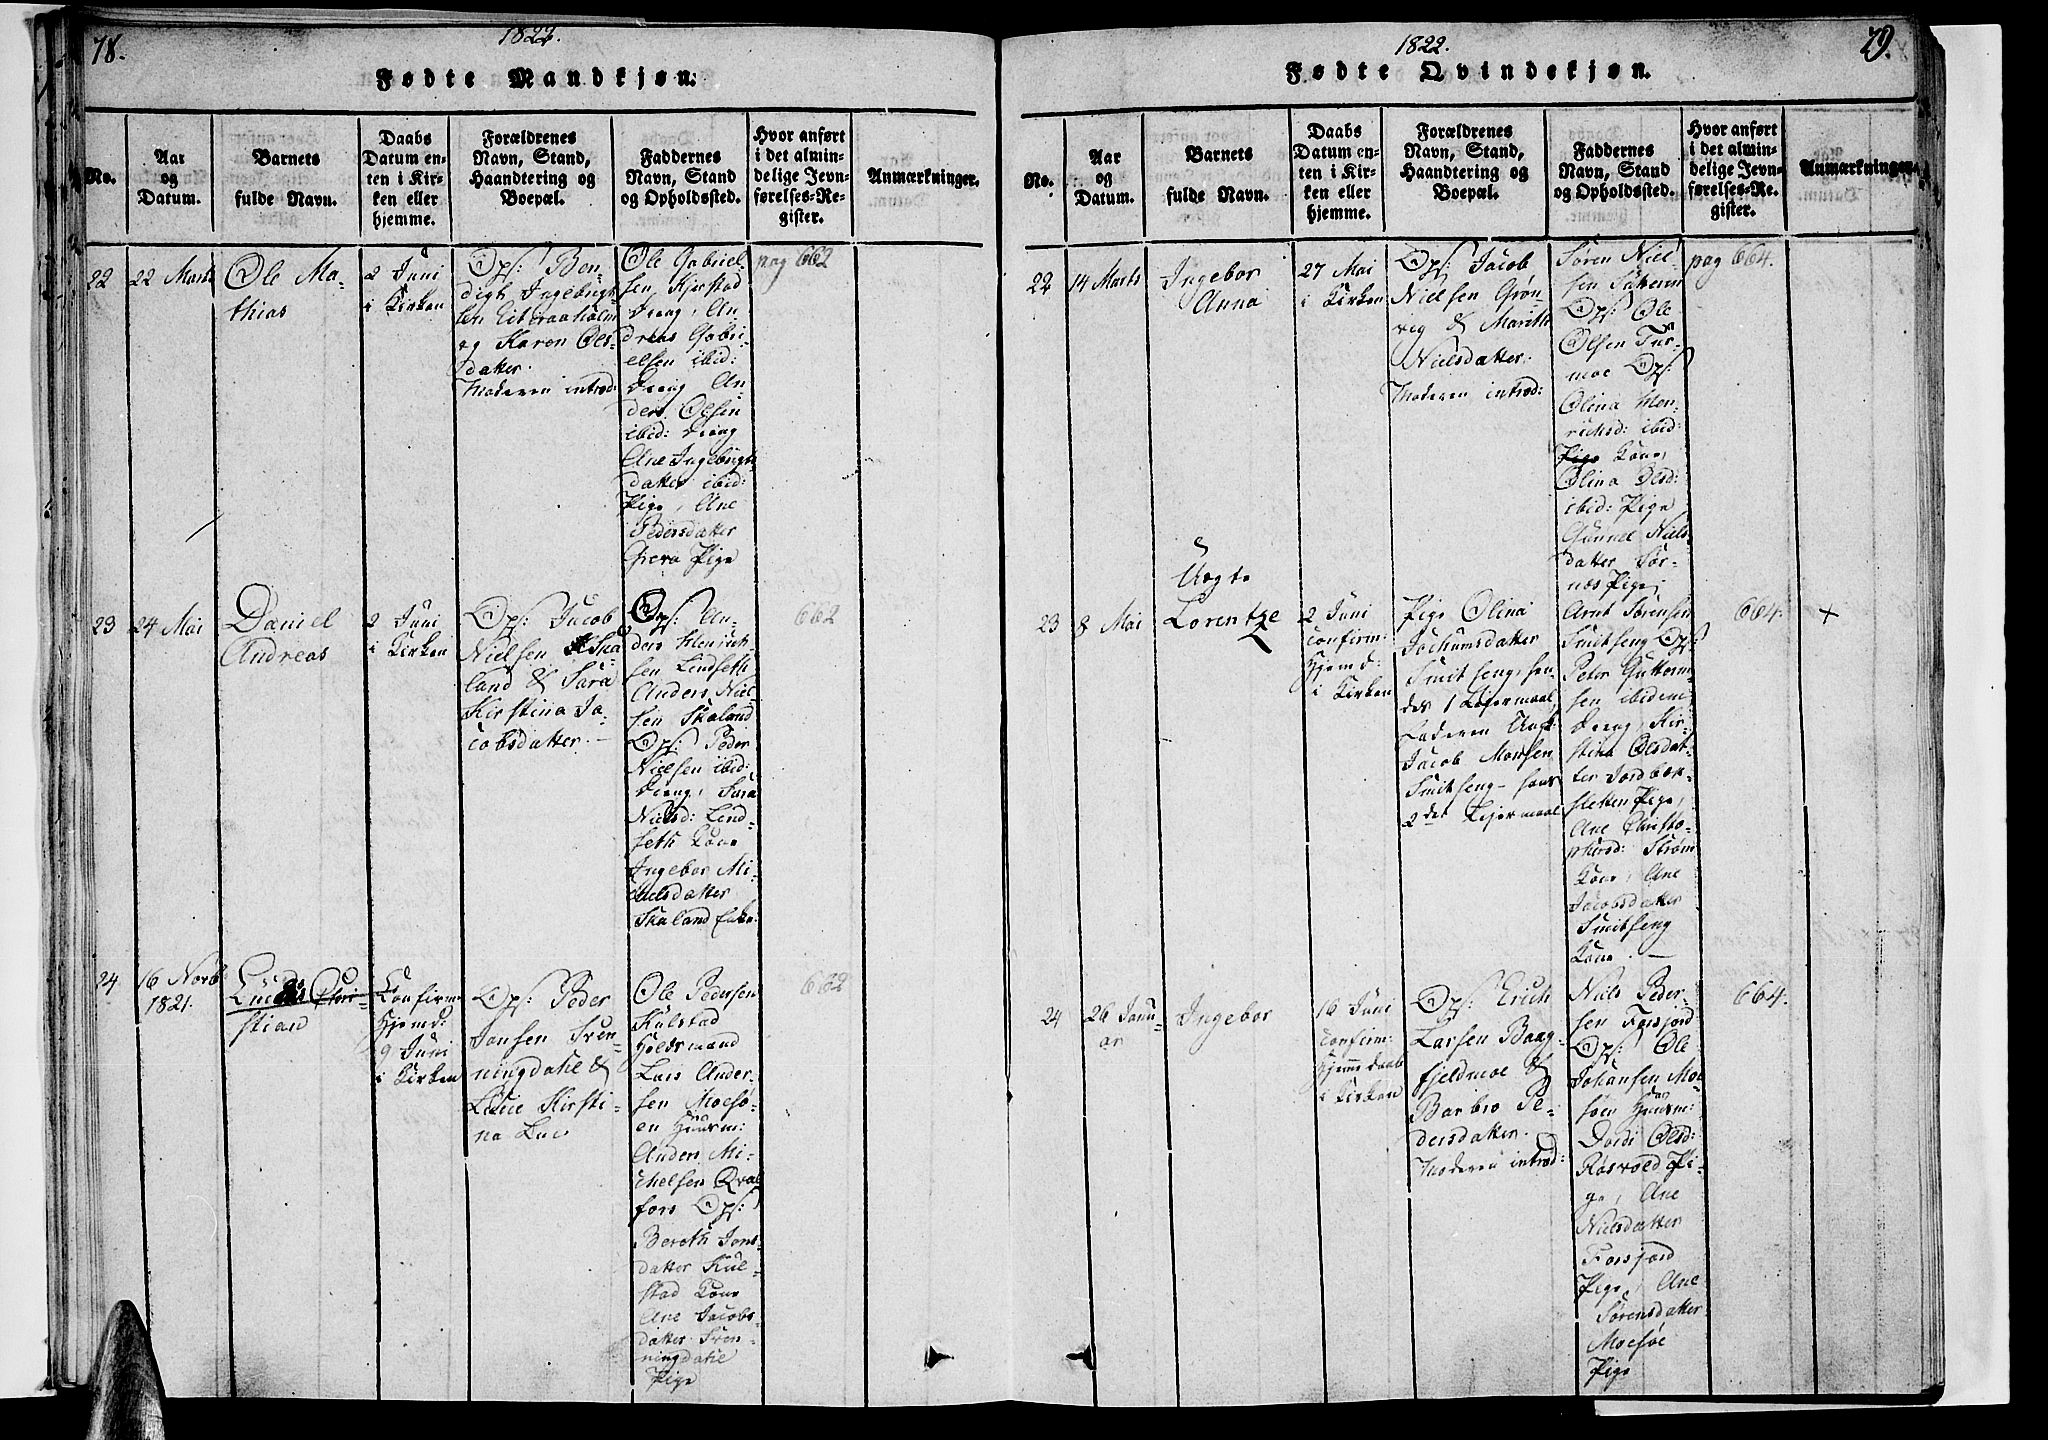 78.
1822.
Fødte Mandkjøn.
No.
Aar
og
Datum.
Barnets
fulde Navn.
Daabs
Datum en-
ten i Kir-
ken eller
hjemme.
Forældrenes
Navn, Stand,
Haandtering og
Boepæl.
Faddernes
Navn, Stand
og Opholdssted.
Hvor anført
i det almin-
delige Jevn-
førelses-Re-
gister.
Anmærkninger.
22
22 Marts
Ole Ma-
thias
2 Juni
i Kirken
Ops: Ben-
digt Ingebrigt-
sen
og Karen Ols-
datter.
Moderen introd:
Ole Gabriel-
sen Kjerstad
Dreng, An-
dreas Gabri-
elsen ibid:
Dreng An-
ders Olsen
ibid: Dreng
Ane Ingebrigts
datter ibid:
Pige, Ane
Pedersdatter
Pige
pag 662
23
24 Mai
Daniel
Andreas
2 Juni
i Kirken
Ops: Jacob
Nielsen Ska
land & Sara
Kirstina Ja-
cobsdatter. —
Ops: An-
ders Henrich-
sen Lindseth
Anders Niel-
sen Skaland
Ops: Peder
Nielsen ibid:
Dreng, Sara
Nielsd: Lind-
seth Kone
Ingebor Mi-
chelsdatter
Skaland Enke.
662
24
16 Novb
1821.
Chri-
stian
Confirm:
Hjemd:
9 Juni
i Kirken
Ops: Peder
Jonsen Sven-
ningdahl &
Lucie Kirsti-
na
Ole Pedersen
Kulstad
Lars Ander-
sen Moesø-
en Huusm:
Anders Mi-
chelsen Qval
fors Ops:
Bereth Jons-
datter Kul-
stad Kone
Ane Jacobs-
datter Sven-
ningdahl
Pige
662
79.
1822.
Fødte Qvindekjøn.
No.
Aar
og
Datum.
Barnets
fulde Navn.
Daabs
Datum en-
ten i Kir-
ken eller
hjemme.
Forældrenes
Navn, Stand,
Haandtering og
Boepæl.
Faddernes
Navn, Stand
og Opholdssted.
Hvor anført
i det almin-
delige Jevn-
førelses-Re-
gister.
Anmærkninger.
22
14 Marts
Ingebor
Anna
27 Mai
i Kirken
Ops: Jacob
Nielsen Grøn-
vig & Marith
Nielsdatter.
Moderen introd:
Søren Niel-
sen
Ops: Ole
Olsen Tur-
moe Ops:
Olina Hen-
richsd: ibid:
Pige Kone,
Olina Olsd:
ibid: Pige
Gunnel Niels
datter Sør-
næs Pige,
pag 664.
23
8 Mai
Uægte
Lorentze
2 Juni
confirm:
Hjemd:
i Kirken
Pige Olina
Jochumsdatter
Smitseng, hen-
des 1 Lejermaal,
Faderen Ungk:
Jacob Monsen
Smitseng - hans
2det Lejermaal
Arnt Sørensen
Smitseng Ops:
Peter Guttorm-
sen ibidem
Dreng, Kir-
stina Olsdat-
ter Jordbæk-
sletten Pige,
Ane Christo-
phersd: Strøm
Kone, Ane
Jacobsdatter
Smitseng
Kone. —
664.
+
24
26 Janu-
ar
Ingebor
16 Juni
confirm:
Hjemmedaab
i Kirken
Ops: Erich
Larsen Baag-
fjeldmoe &
Barbro Pe-
dersdatter.
Moderen introd:
Niels Peder-
sen Forsjord
Ops: Ole
Johansen Moe
søen Huusm:
Dordi Olsd:
Røsvold Pi-
ge, Ane
Nielsdatter
Forsjord
Pige, Ane
Sørensdatter
Moesøe
Pige
664.